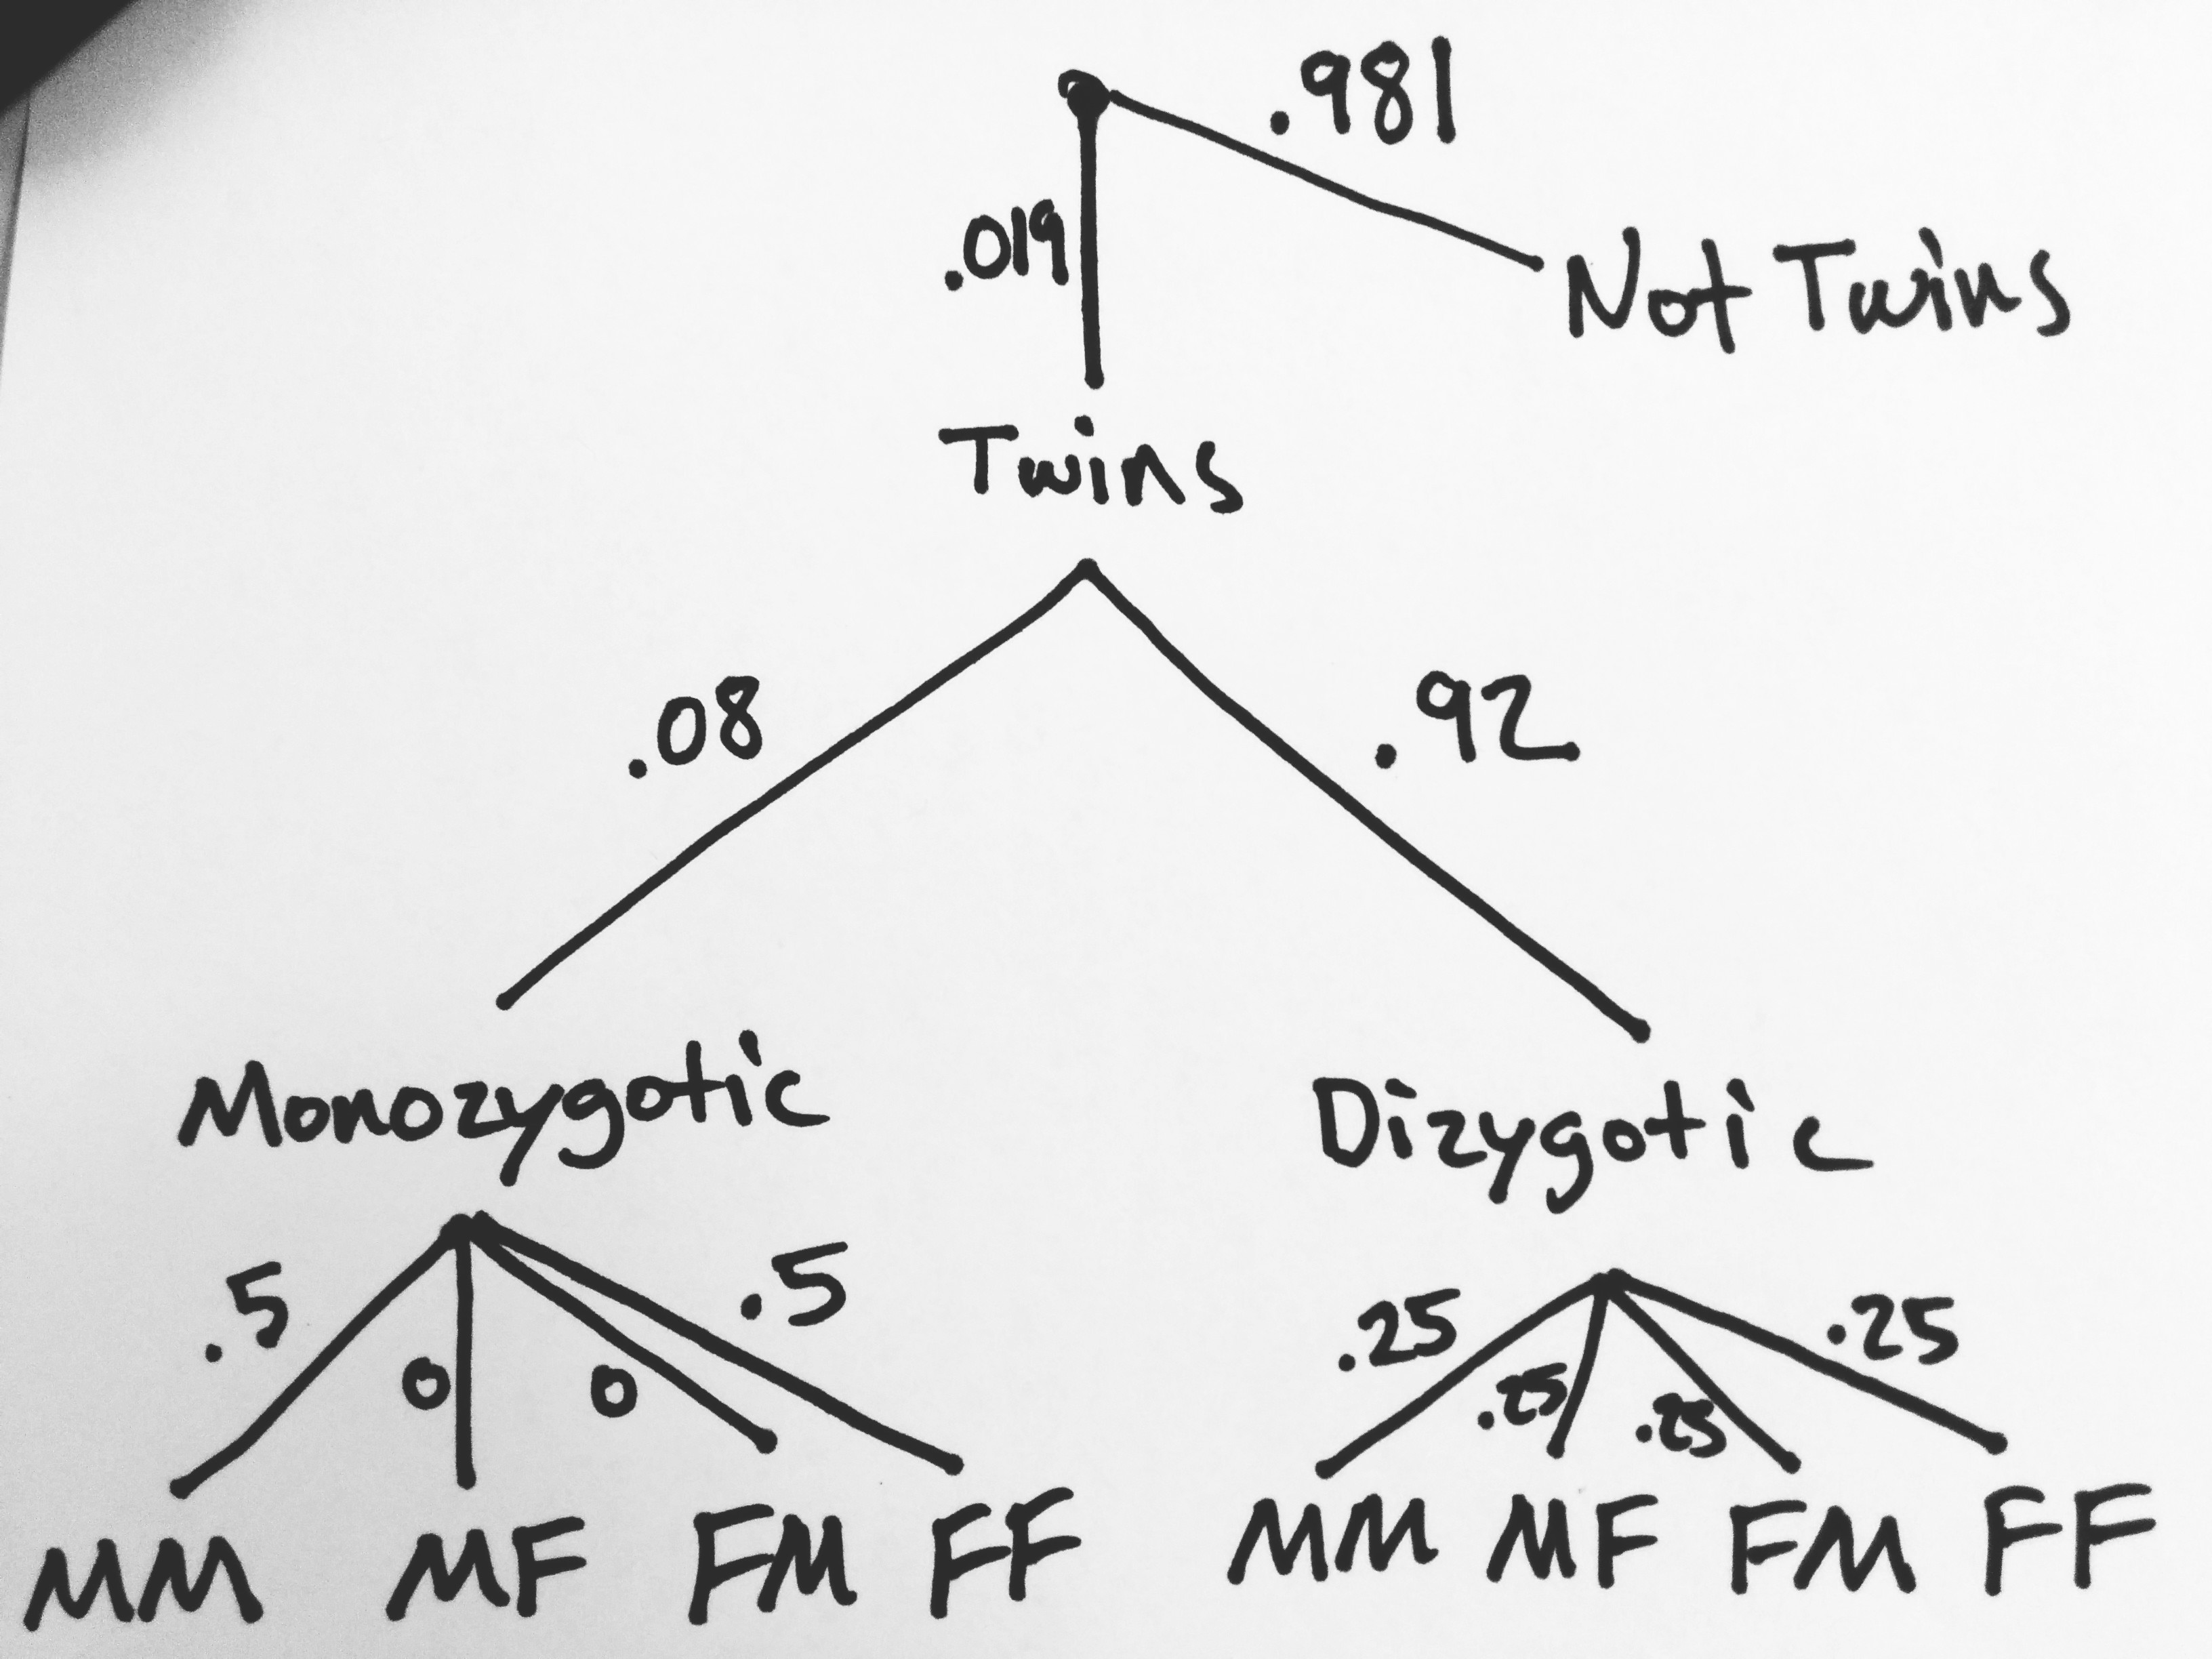 .981
.019
Not Twins
Twins
.08
.92
Monozygotic
Dizygotic
.5
0
0
.5
.25
.25
.25
.25
MM MF FM FF
MM MF FM FF